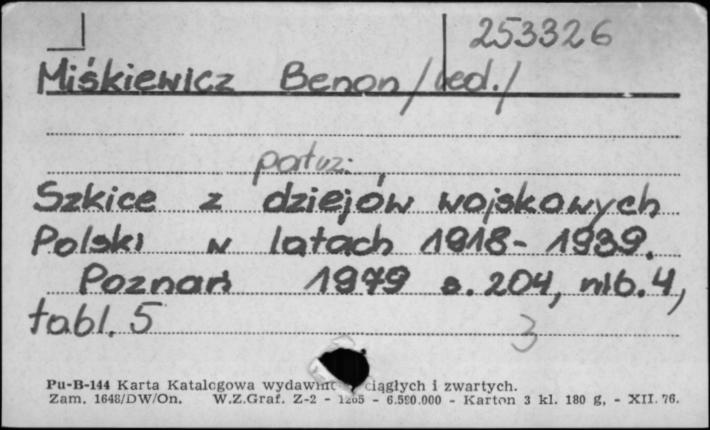 253326
Miśkiewicz Benon /red./
Szkice z dziejów wojskowych
Polski w latach 1918-1939.
Poznań 1979 s. 204, nlb. 4,
tabl. 5
3
Pu-B-144 Karta Katalogowa wydawnictw ciągłych i zwartych.
Zam. 1648/DW/On. W.Z.Graf. Z-2 - 1265 - 6.590.000 - Karton 3 kl. 180 g, - XII. 76.